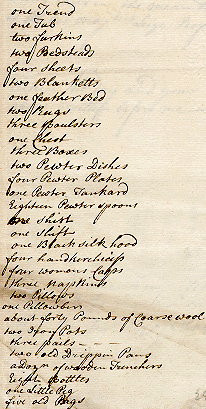 one Trend
one Tub
two furkins
two Bedsteads
four sheets
two Blanketts
one feather Bed
two Rugs
three boulsters
one Chest
three Boxes
two Pewter Dishes
four Pewter Plates
one Pewter Tankard
Eighteen Pewter spoons
one shirt
one shift
one Black silk hood
four handkercheifs
four womens Capps
three napkins
two Pillows
one Pillowbear
about forty Pounds of Coarse wool
two Iron Pots
three pails
two old Drippin Pans
a Dozn of wooden Trenchers
Eight Bottles
one little Peg
five old Bags